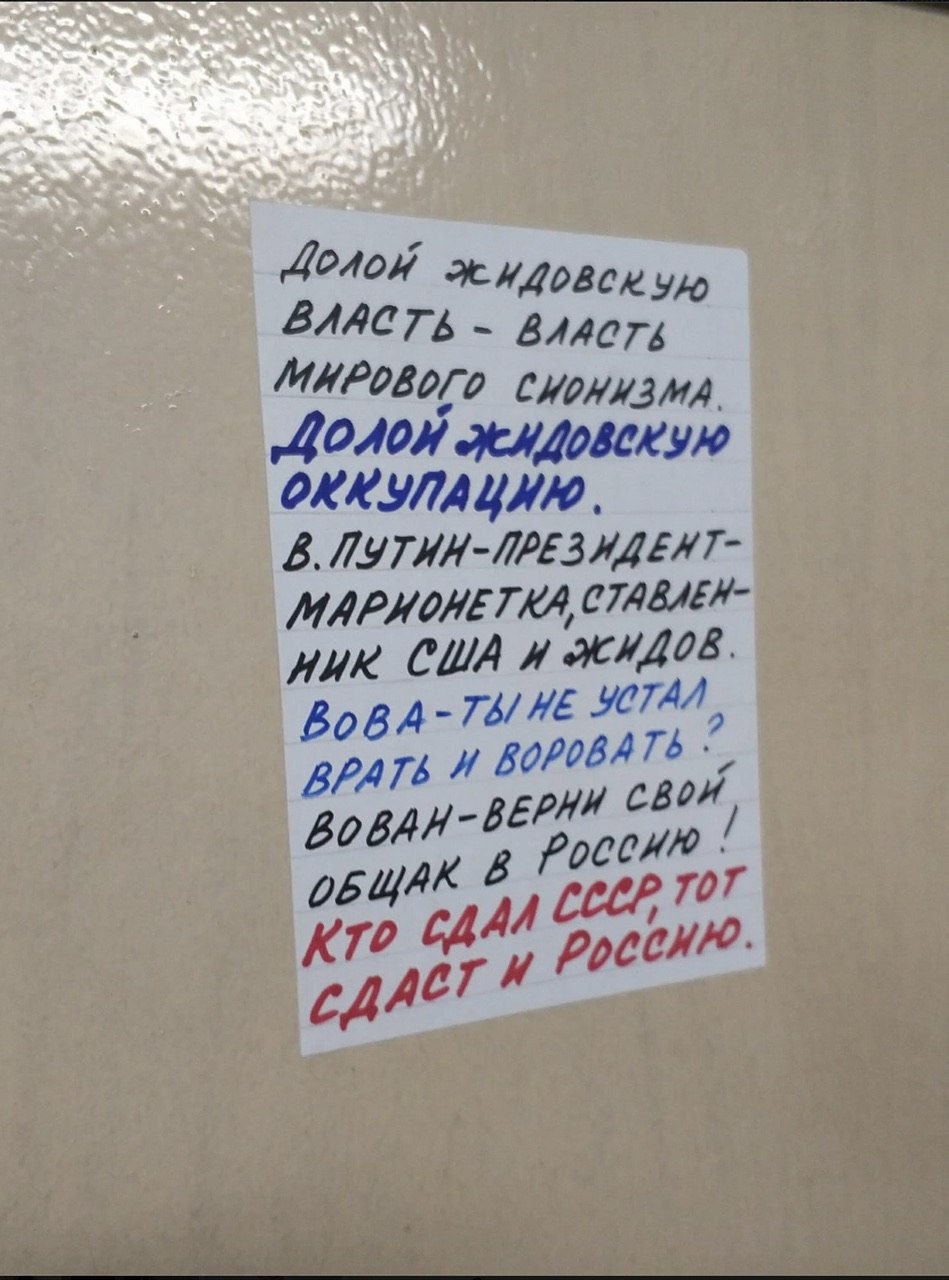 ДОЛОЙ ЖИДОВСКУЮ
ВЛАСТЬ - ВЛАСТЬ
МИРОВОГО СИОНИЗМА.
ДОЛОЙ ЖИДОВСКУЮ
ОККУПАЦИЮ.
В. ПУТИН-ПРЕЗИДЕНТ-
МАРИОНЕТКА, СТАВЛЕН-
НИК США И ЖИДОВ.
ВОВА-ТЫ НЕ УСТАЛ
ВРАТЬ И ВОРОВАТЬ?
ВОВАН-ВЕРНИ СВОЙ
ОБЩАК В РОССИЮ!
КТО СДАЛ СССР, ТОТ
СДАСТ И РОССИЮ.